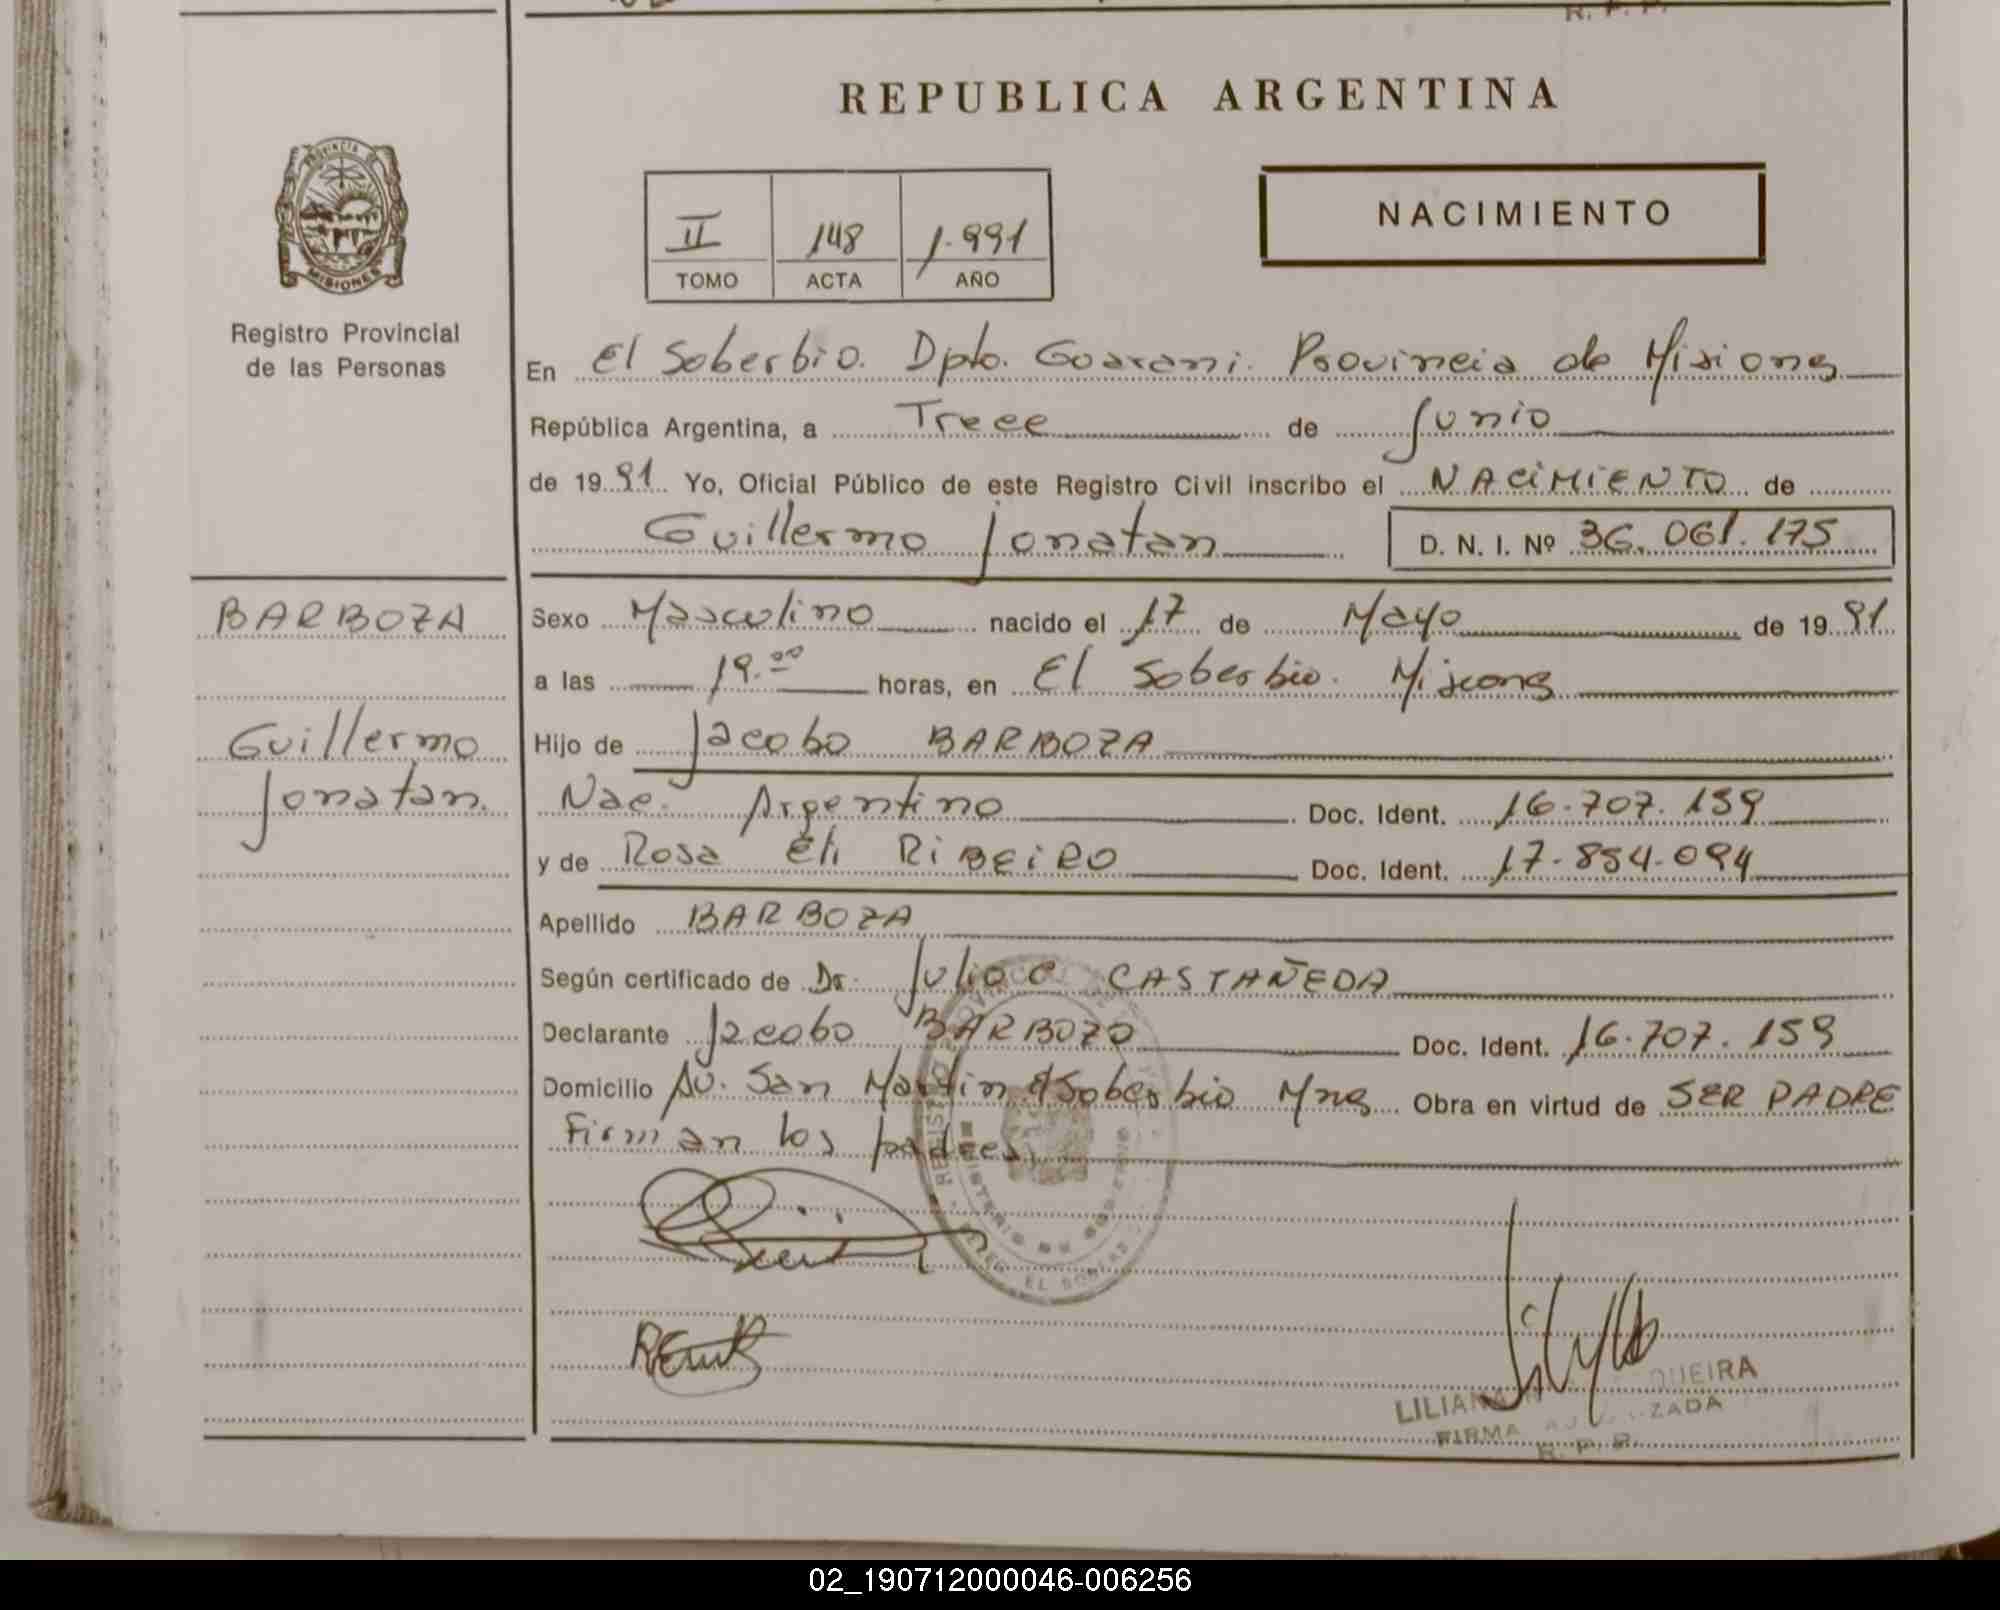 R. P. P.
REPUBLICA ARGENTINA
PROVINCIA DE
MISIONES
Registro Provincial
de las Personas
II 148 1.991
TOMO ACTA AÑO
NACIMIENTO
En El Soberbio. Dpto. Guarani. Provincia de Misiones
República Argentina, a Trece de Junio
de 1991 Yo, Oficial Público de este Registro Civil inscribo el NACIMIENTO de
Guillermo Jonatan D. N. I. Nº 36.061.175
BARBOZA
Guillermo
Jonatan.
Sexo Masculino nacido el 17 de Mayo de 1991
a las 19.00 horas, en El Soberbio. Misiones
Hijo de Jacobo BARBOZA
Nac. Argentino Doc. Ident. 16.707.159
y de Rosa Eli RIBEIRO Doc. Ident. 17.854.094
Apellido BARBOZA
Según certificado de Dr. Julio C CASTAÑEDA
Declarante Jacobo BARBOZO Doc. Ident. 16.707.159
Domicilio Av. San Martin El Soberbio Mnes Obra en virtud de SER PADRE
Firman los padres
LILIANA QUEIRA
FIRMA
R. P. P.
02_190712000046-006256